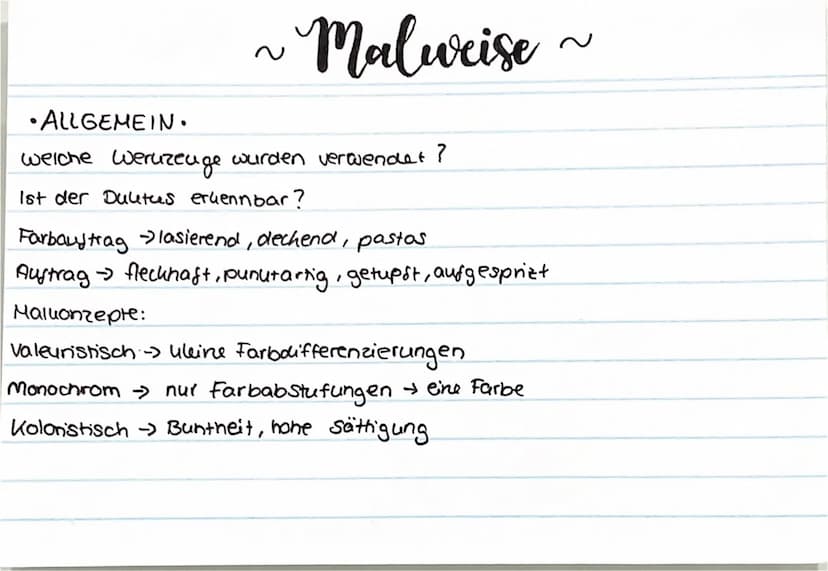 ~ Malweise ~
• ALLGEMEIN •
Welche Werkzeuge wurden verwendet?
Ist der Duktus erkennbar?
Farbauftrag → lasierend, deckend, pastos
Auftrag → fleckhaft, punktartig, getupft, aufgesprizt
Malkonzepte:
Valeuristisch → kleine Farbdifferenzierungen
Monochrom → nur Farbabstufungen → eine Farbe
Koloristisch → Buntheit, hohe Sättigung